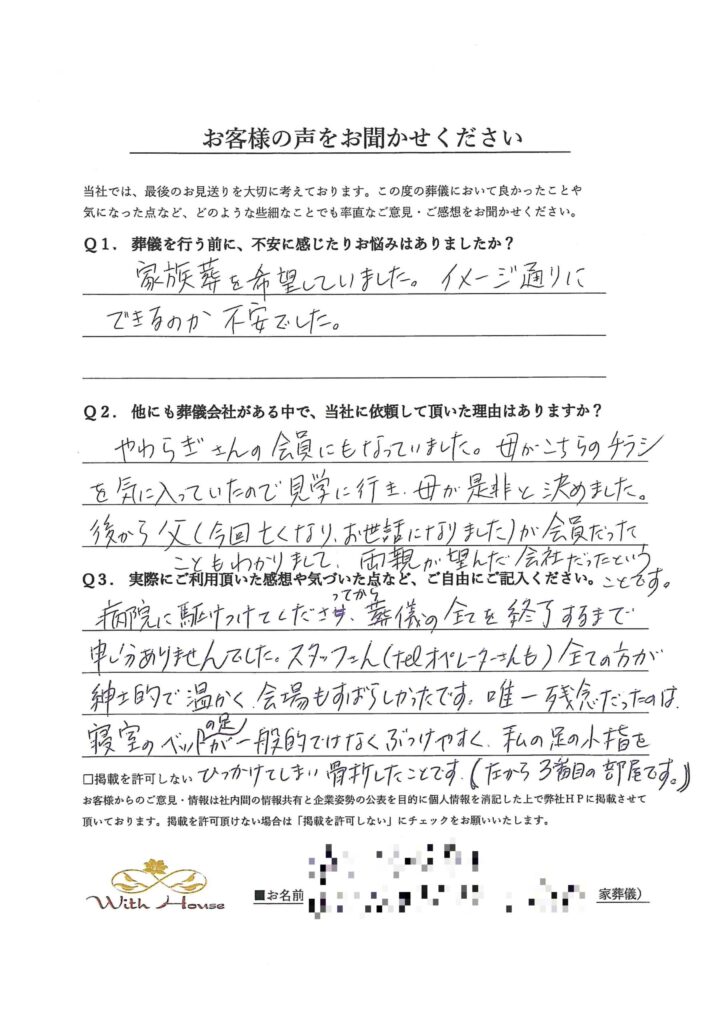 お客様の声をお聞かせください
当社では、最後のお見送りを大切に考えております。この度の葬儀において良かったことや
気になった点など、どのような些細なことでも率直なご意見・ご感想をお聞かせください。
Q1. 葬儀を行う前に、不安に感じたりお悩みはありましたか？
家族葬を希望していました。イメージ通りに
できるのか不安でした。
Q2. 他にも葬儀会社がある中で、当社に依頼して頂いた理由はありますか？
やわらぎさんの会員にもなっていました。母がこちらのチラシ
を気に入っていたので見学に行き、母が是非と決めました。
後から父(今回亡くなり、お世話になりました)が会員だった
こともわかりまして、両親が望んだ会社だったという
ことです。
Q3. 実際にご利用頂いた感想や気づいた点など、ご自由にご記入ください。
病院に駆けつけてくださってから、葬儀の全てを終了するまで
申し分ありませんでした。スタッフさん(telオペレーターさんも)全ての方が
紳士的で温かく、会場もすばらしかったです。唯一残念だったのは、
寝室のベッドの足が一般的ではなくぶつけやすく、私の足の小指を
□掲載を許可しない ひっかけてしまい骨折したことです。(左から3番目の部屋です。)
お客様からのご意見・情報は社内間の情報共有と企業姿勢の公表を目的に個人情報を消記した上で弊社HPに掲載させて
頂いております。掲載を許可頂けない場合は「掲載を許可しない」にチェックをお願いいたします。
With House
■お名前
家葬儀）